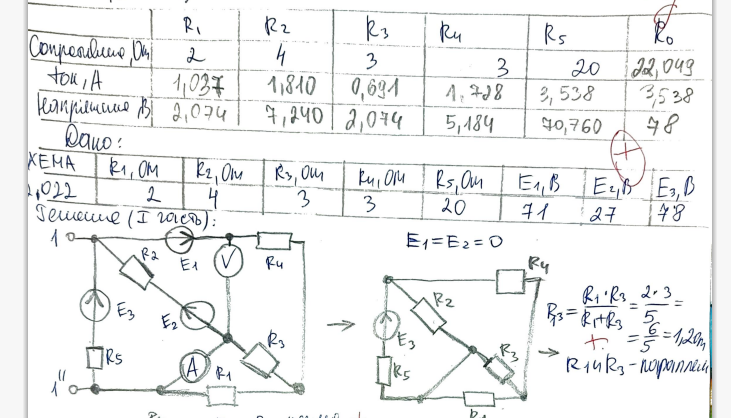 R₁ R₂ R₃ R₄ R₅ R₀
Сопротивление, Ом 2 4 3 3 20 22,049
ток, А 1,037 1,810 0,691 1,728 3,538 3,538
Напряжение, В 2,074 7,240 2,074 5,184 70,760 78
Дано:
ХЕМА R₁, Ом R₂, Ом R₃, Ом R₄, Ом R₅, Ом E₁, В E₂, В E₃, В
2,022 2 4 3 3 20 71 27 78
Решение (I часть):
1 E₁ V R₄
R₂
E₃ E₂
R₅ A R₁ R₃
1"
E₁=E₂=0
R₄
R₂
E₃
R₅ R₃
R₁
R₁₃= R₁·R₃ / R₁+R₃ = 2·3 / 5 =
= 6 / 5 = 1,2 Ом
R₁ и R₃ - параллел